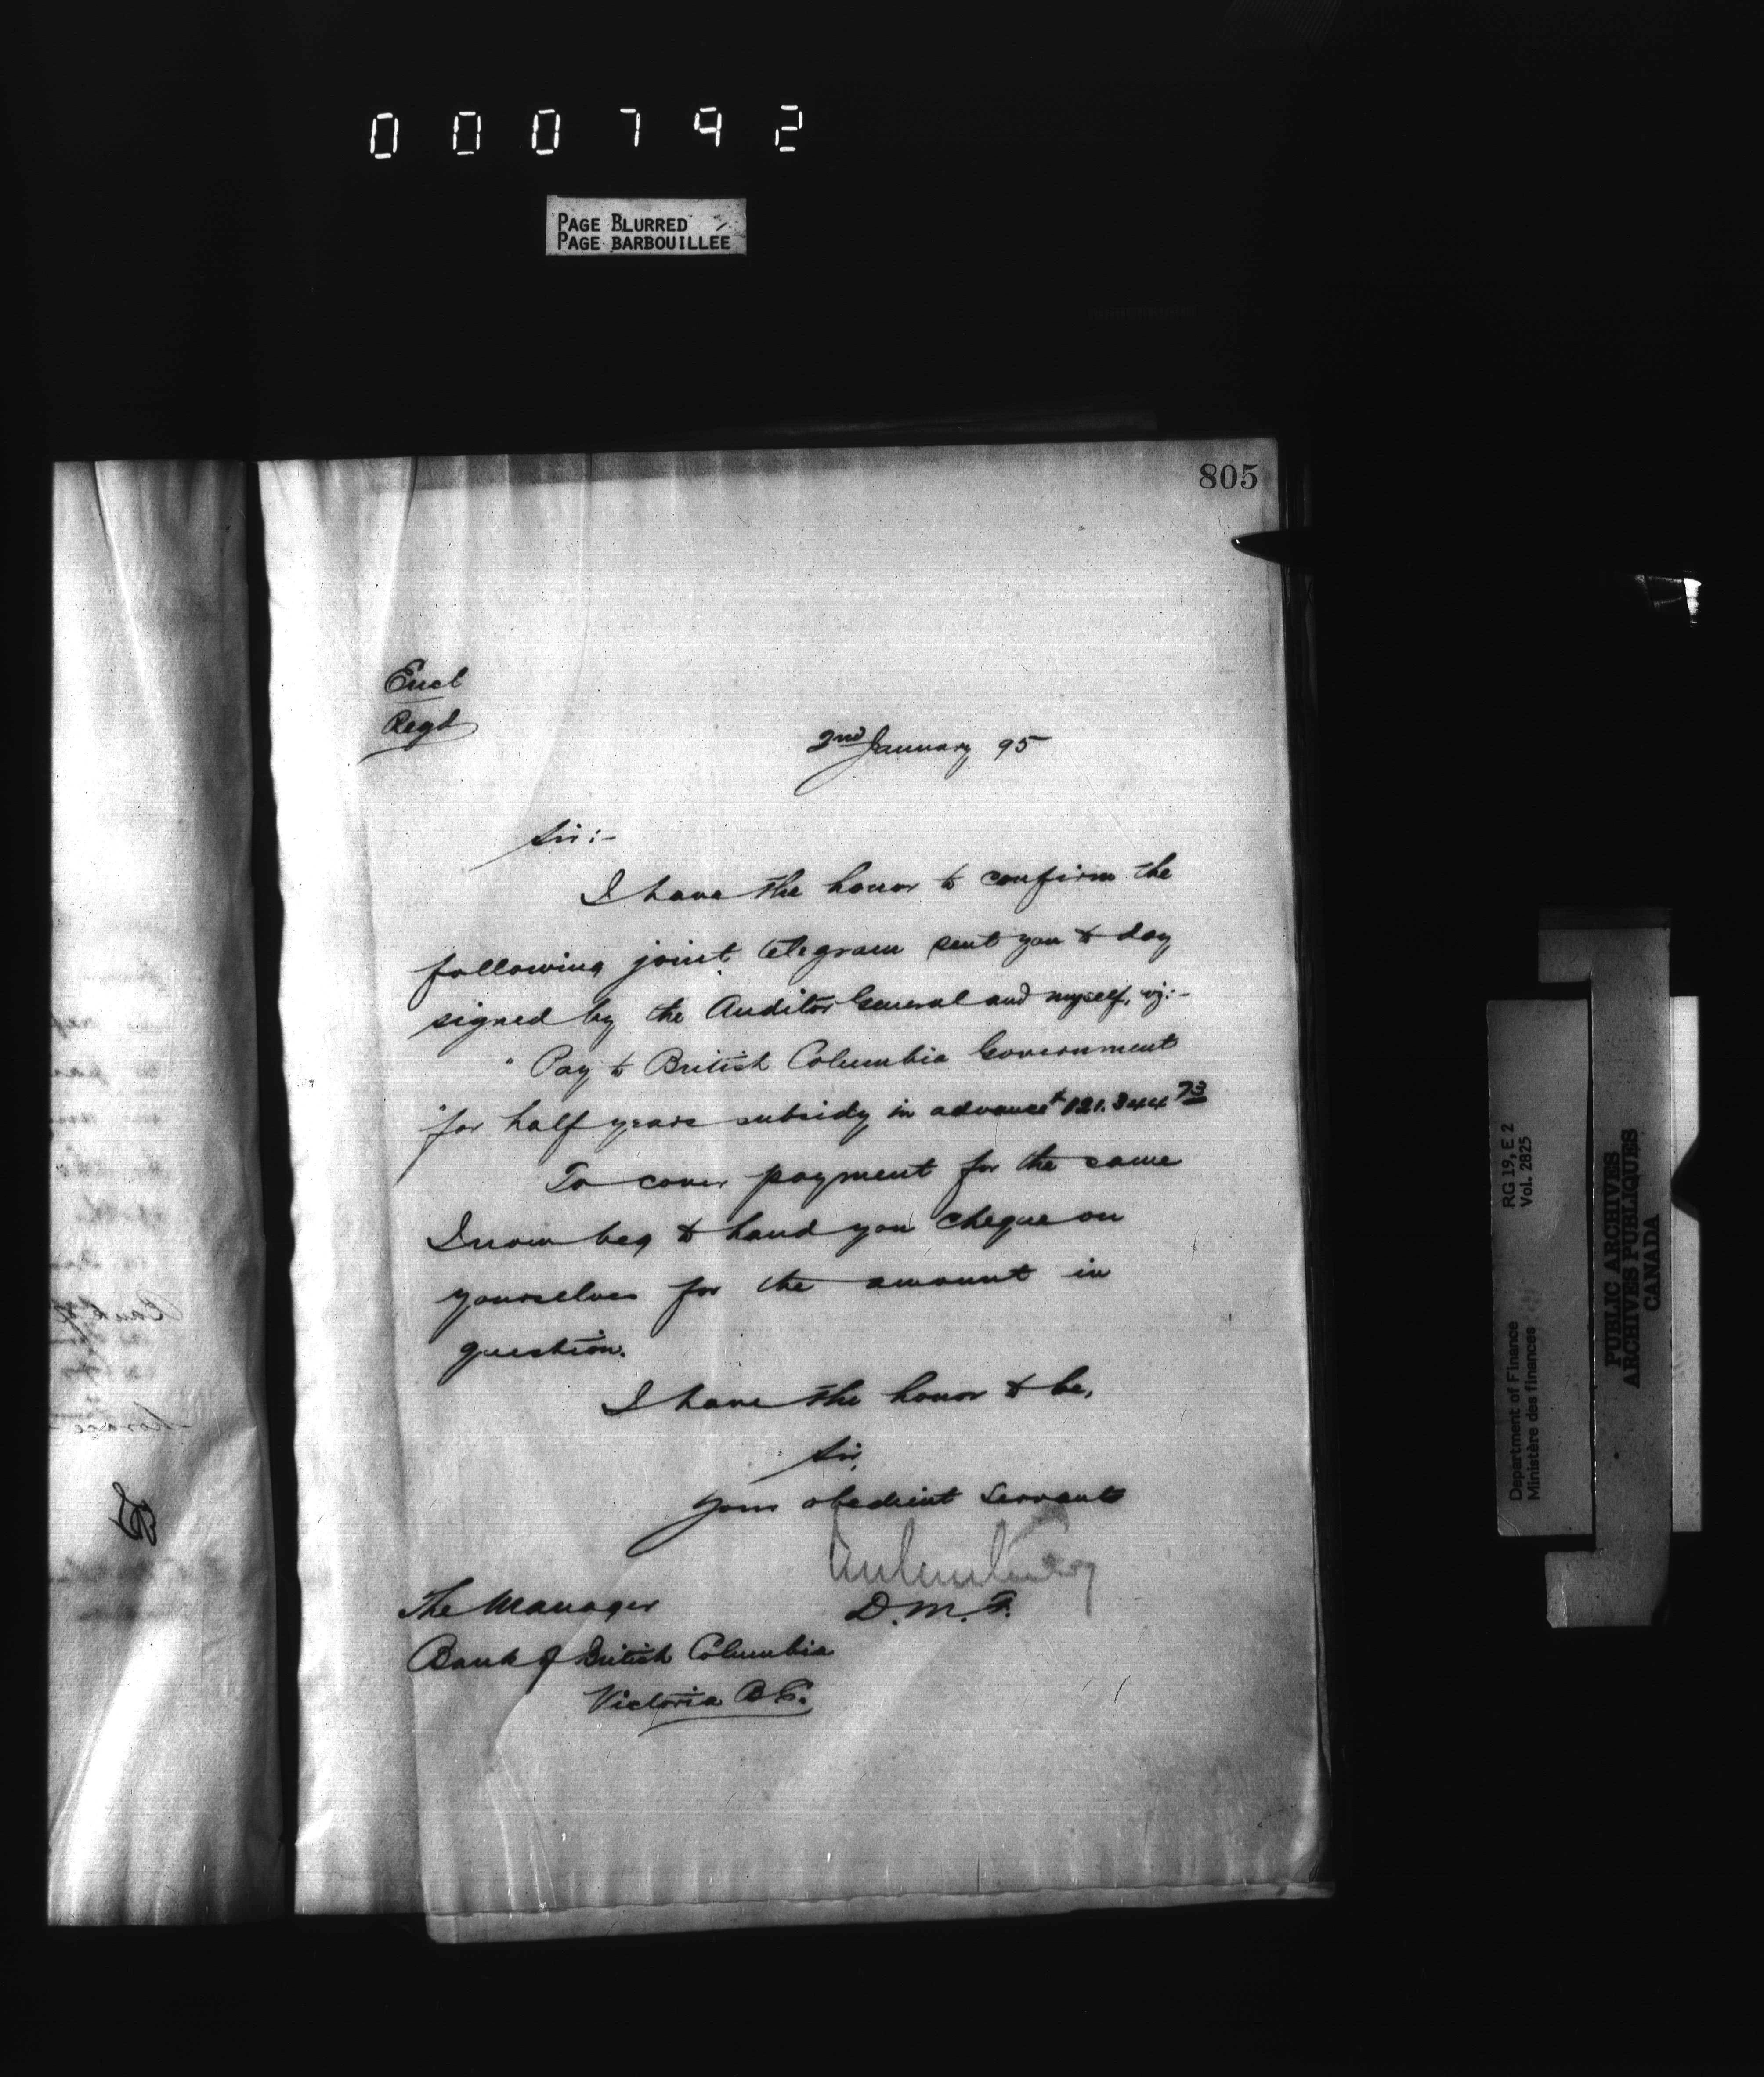 000792
PAGE BLURRED
PAGE BARBOUILLÉE
805
Encl
Regd
2nd January 95
Sir:-
I have the honor to confirm the
following joint telegram sent you to day
signed by the Auditor General and myself, viz:-
" Pay to British Columbia Government
"for half years subsidy in advance $121.344 73
To cover payment for the same
I now beg to hand you cheque on
yourselves for the amount in
question.
I have the honor to be,
Sir,
Your obedient servant
D.M.F.
The Manager
Bank of British Columbia
Victoria B.C.
RG 19, E 2
Vol. 2825
Department of Finance
Ministère des finances
PUBLIC ARCHIVES
ARCHIVES PUBLIQUES
CANADA